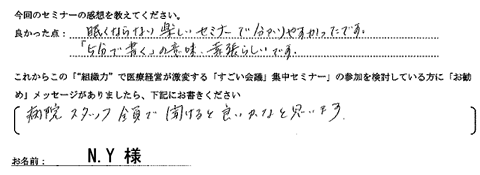 今回のセミナーの感想を教えてください。
良かった点： 眠くならない楽しいセミナーで分かりやすかったです。
「5分で書く」の意味、素晴らしいです。
これからこの「“組織力”で医療経営が激変する「すごい会議」集中セミナー」の参加を検討している方に「お勧
め」メッセージがありましたら、下記にお書きください
病院スタッフ全員で聞けると良いかなと思います。
お名前： N.Y 様